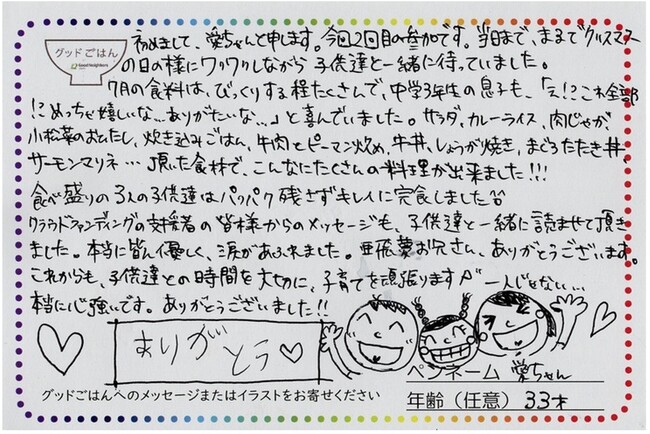 グッドごはん
Good Neighbors
初めまして、愛ちゃんと申します。今回2回目の参加です。当日まで、まるでクリスマス
の日の様にワクワクしながら子供達と一緒に待っていました。
7月の食料は、びっくりする程たくさんで、中学3年生の息子も、「え!?これ全部
!?めっちゃ嬉しいな…ありがたいな…」と喜んでいました。サラダ、カレーライス、肉じゃが、
小松菜のおひたし、炊き込みごはん、牛肉とピーマン炒め、牛丼、しょうが焼き、まぐろたたき丼、
サーモンマリネ…頂いた食材で、こんなにたくさんの料理が出来ました!!!
食べ盛りの3人の子供達はパクパク残さずキレイに完食しました
クラウドファンディングの支援者の皆様からのメッセージも、子供達と一緒に読ませて頂き
ました。本当に皆んな優しく、涙があふれました。亜 お兄さん、ありがとうございます。
これからも、子供達との時間を大切に、子育てを頑張ります♪ 一人じゃない…
本当に心強いです。ありがとうございました!!
ありがとう♡
ペンネーム 愛ちゃん
グッドごはんへのメッセージまたはイラストをお寄せください
年齢（任意） 33才